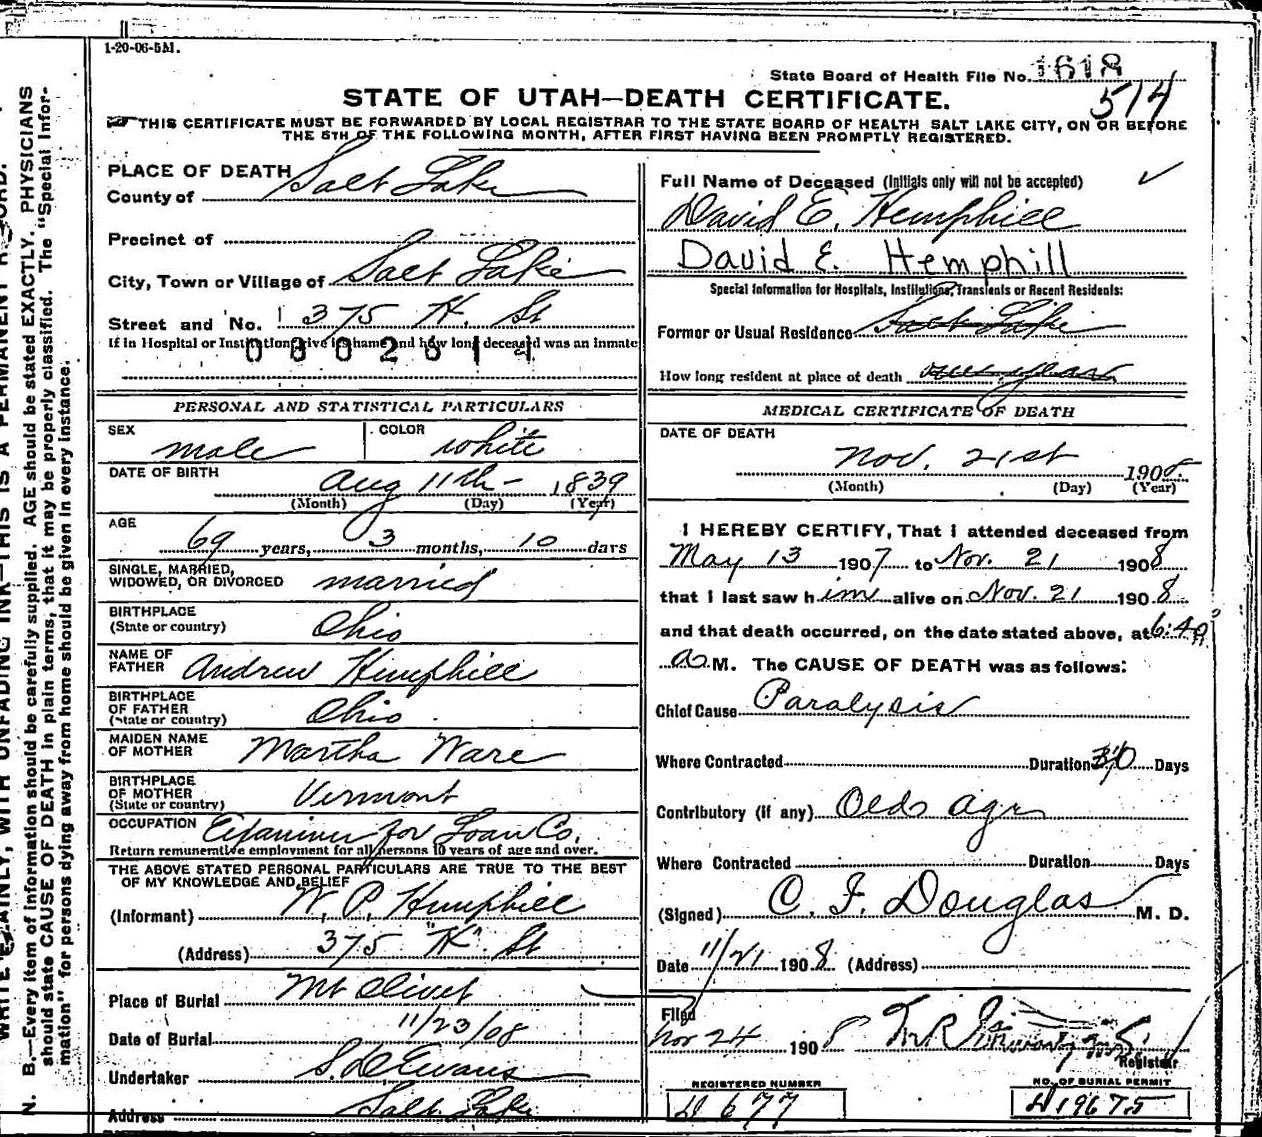 1-20-06-5M.
State Board of Health File No. 1618
514
STATE OF UTAH—DEATH CERTIFICATE.
THIS CERTIFICATE MUST BE FORWARDED BY LOCAL REGISTRAR TO THE STATE BOARD OF HEALTH SALT LAKE CITY, ON OR BEFORE
THE 5TH OF THE FOLLOWING MONTH, AFTER FIRST HAVING BEEN PROMPTLY REGISTERED.
PLACE OF DEATH
County of Salt Lake
Precinct of
City, Town or Village of Salt Lake
Street and No. 375 K. St
If in Hospital or Institution give its name and how long deceased was an inmate
0802611
PERSONAL AND STATISTICAL PARTICULARS
SEX male COLOR white
DATE OF BIRTH Aug 11th - 1839
(Month) (Day) (Year)
AGE 69 years, 3 months, 10 days
SINGLE, MARRIED,
WIDOWED, OR DIVORCED married
BIRTHPLACE
(State or country) Ohio
NAME OF
FATHER Andrew Hemphill
BIRTHPLACE
OF FATHER
(State or country) Ohio
MAIDEN NAME
OF MOTHER Martha Ware
BIRTHPLACE
OF MOTHER
(State or country) Vermont
OCCUPATION Examiner for Loan Co.
Return remunerative employment for all persons 10 years of age and over.
THE ABOVE STATED PERSONAL PARTICULARS ARE TRUE TO THE BEST
OF MY KNOWLEDGE AND BELIEF
(Informant) W. P. Hemphill
(Address) 375 "K" St
Place of Burial Mt Olivet
Date of Burial 11/23/08
Undertaker S. D. Evans
Address Salt Lake
Full Name of Deceased (Initials only will not be accepted)
David E. Hemphill
David E. Hemphill
Special Information for Hospitals, Institutions, Transients or Recent Residents:
Former or Usual Residence Salt Lake
How long resident at place of death years
MEDICAL CERTIFICATE OF DEATH
DATE OF DEATH
Nov. 21st 1908
(Month) (Day) (Year)
I HEREBY CERTIFY, That I attended deceased from
May 13 1907 to Nov. 21 1908
that I last saw him alive on Nov. 21 1908
and that death occurred, on the date stated above, at 6:40
a. M. The CAUSE OF DEATH was as follows:
Chief Cause Paralysis
Where Contracted Duration Days
Contributory (if any) Old age
Where Contracted Duration Days
(Signed) C. F. Douglas M. D.
Date 11/21 1908 (Address)
Filed
Nov 24 1908
Registrar
REGISTERED NUMBER
D 677
NO. OF BURIAL PERMIT
D 19675
N. B.—Every item of information should be carefully supplied. AGE should be stated EXACTLY. PHYSICIANS
should state CAUSE OF DEATH in plain terms, that it may be properly classified. The "Special Infor-
mation" for persons dying away from home should be given in every instance.
WRITE PLAINLY, WITH UNFADING INK—THIS IS A PERMANENT RECORD.